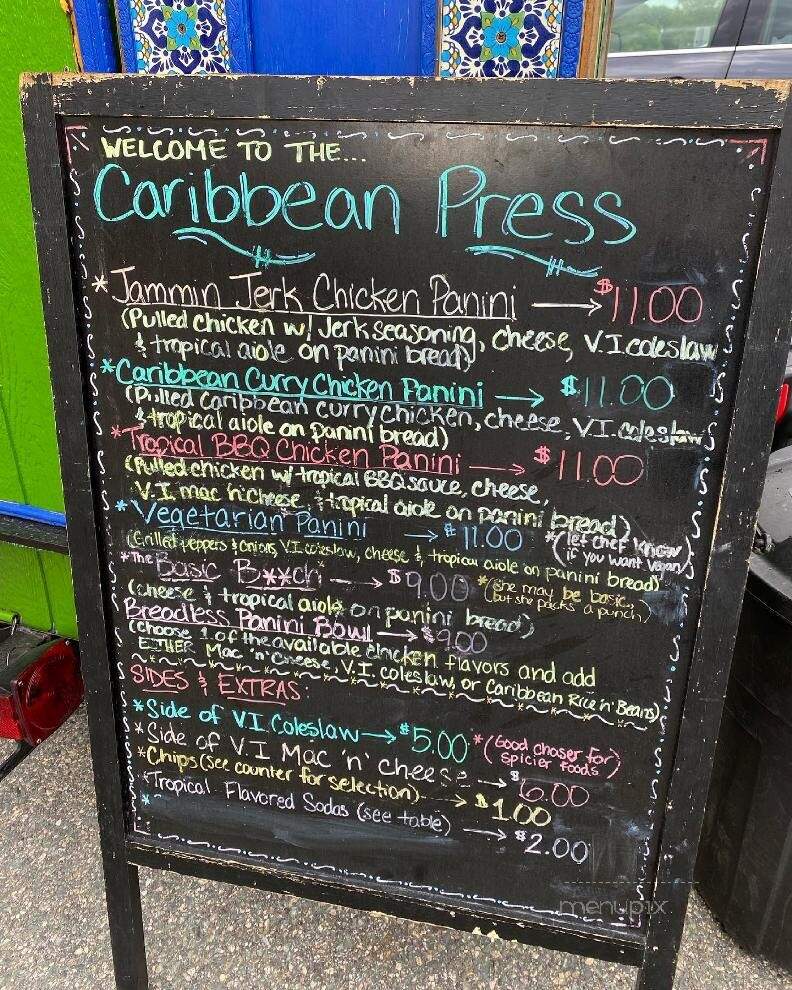 WELCOME TO THE...
Caribbean Press
*Jammin Jerk Chicken Panini → $11.00
(Pulled chicken w/ Jerk seasoning, cheese, V.I. coleslaw
& tropical aiole on panini bread)
*Caribbean Curry Chicken Panini → $11.00
(Pulled Caribbean curry chicken, cheese, V.I. coleslaw
& tropical aiole on panini bread)
*Tropical BBQ Chicken Panini → $11.00
(Pulled chicken w/ tropical BBQ sauce, cheese,
V.I. mac 'n' cheese, & tropical aiole on panini bread)
*Vegetarian Panini → $11.00 *(let chef know
if you want vegan)
(Grilled peppers & onions, V.I. coleslaw, cheese & tropical aiole on panini bread)
*The Basic B**ch → $9.00 *(she may be basic,
but she packs a punch)
(cheese & tropical aiole on panini bread)
Breadless Panini Bowl → $9.00
(Choose 1 of the available chicken flavors and add
EITHER Mac 'n' Cheese, V.I. coleslaw, or Caribbean Rice 'n' Beans)
SIDES & EXTRAS:
*Side of V.I. Coleslaw → $5.00 *(Good chaser for
spicier foods)
*Side of V.I Mac 'n' cheese → $6.00
*Chips (see counter for selection) → $1.00
*Tropical Flavored Sodas (see table) → $2.00
*
menupix